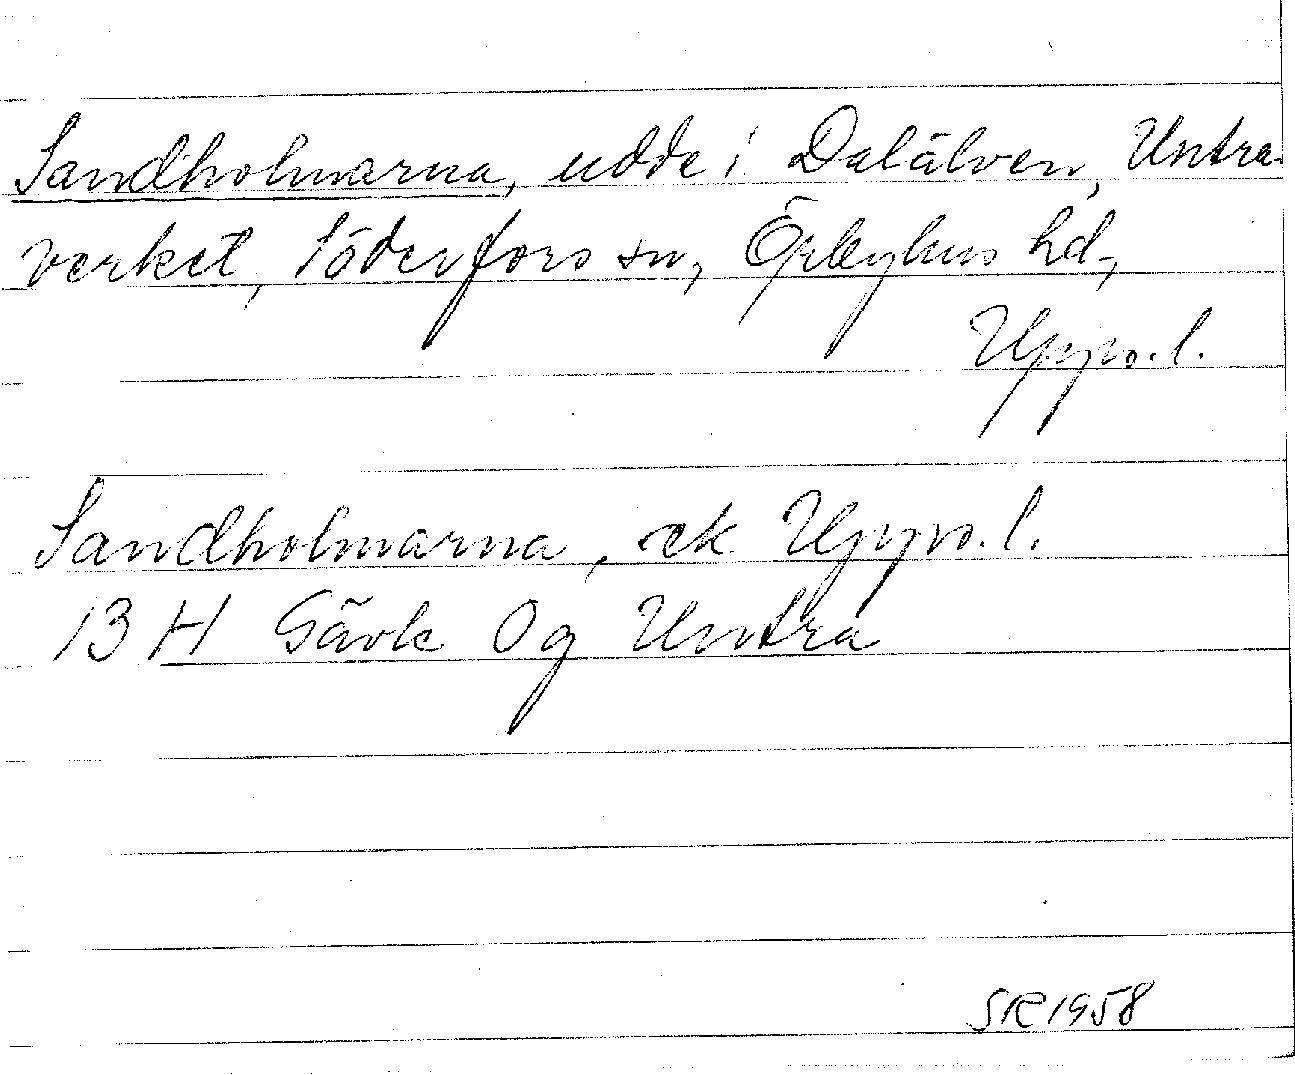 Sandholmarna, udde i Dalälven, Untra-
verket, Söderfors sn, Örbyhus hd,
Upps. l.
Sandholmarna, ek Upps. l.
13 H Gävle Og Untra
SR 1958